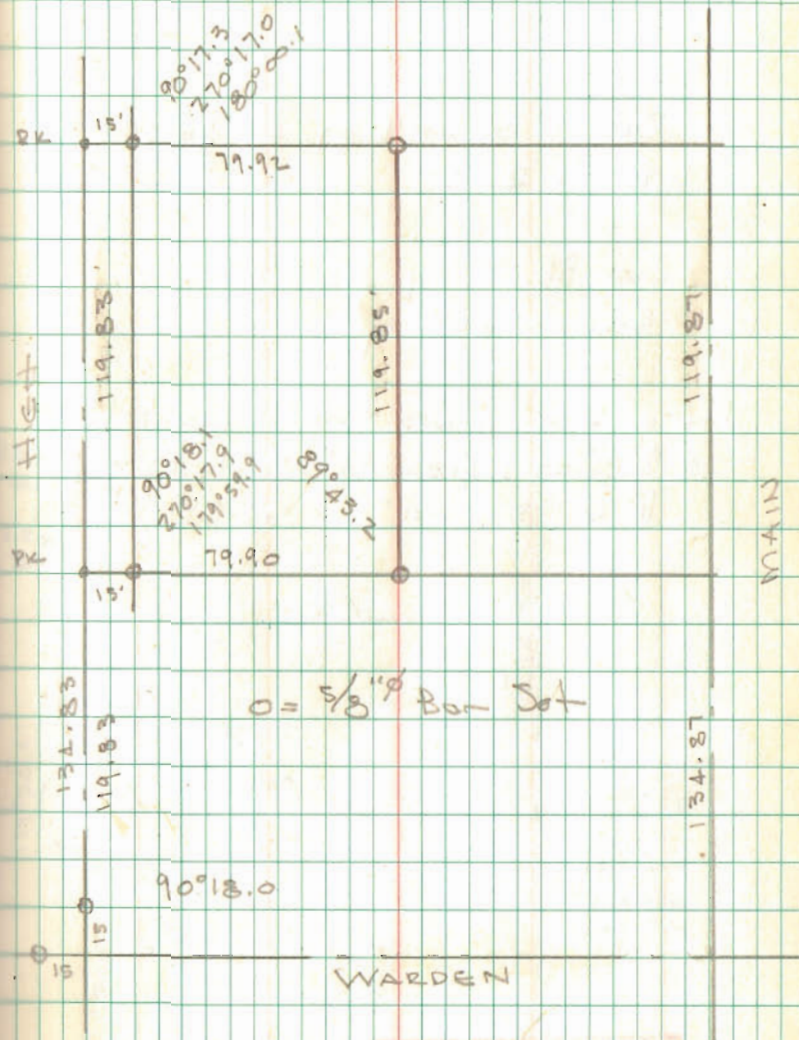 90°17.3
270°17.0
180°00.1
PK
15'
79.92
119.83'
119.85'
119.87
90°18.1
270°17.9
179°59.9
89°43.2
MAIN
PK
79.90
15'
O = 5/8"ø Bar Set
134.83
119.83
134.87
90°18.0
15
15
WARDEN